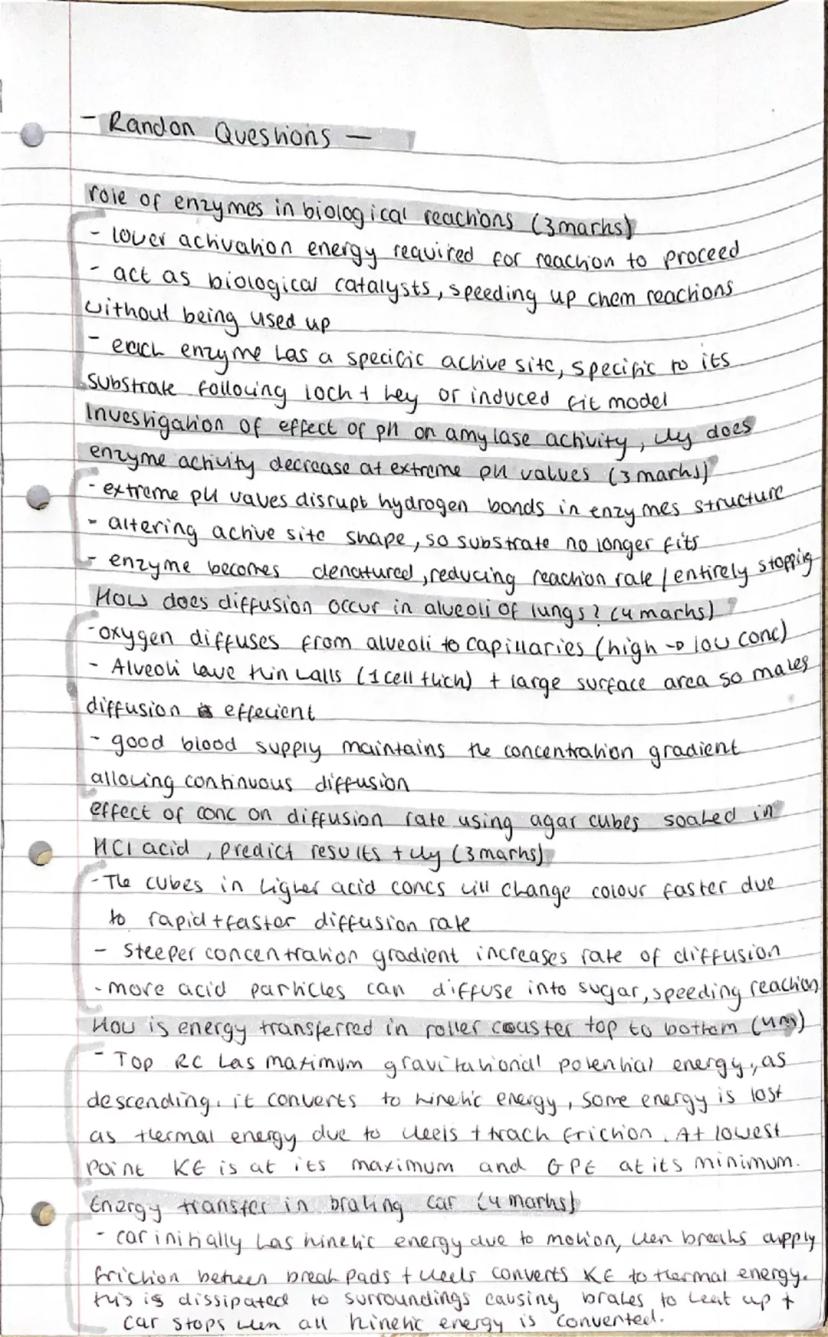 - Randon Questions -
role of enzymes in biological reactions (3marks)
- lower activation energy required for reaction to proceed
- act as biological catalysts, speeding up chem reactions
without being used up
- each enzyme has a specific active site, specific to its
substrate following lock + key or induced fit model
Investigation of effect of pH on amylase activity, why does
enzyme activity decrease at extreme pH values (3 marks)
- extreme pH vaves disrupt hydrogen bonds in enzymes structure
- altering active site shape, so substrate no longer fits
- enzyme becomes denatured, reducing reaction rate / entirely stopping
How does diffusion occur in alveoli of lungs? (4 marks)
- oxygen diffuses from alveoli to capillaries (high → low conc)
- Alveoli have thin walls (1 cell thick) + large surface area so makes
diffusion effecient
- good blood supply maintains the concentration gradient
allowing continuous diffusion
effect of conc on diffusion rate using agar cubes soaked in
HCl acid, predict results + why (3 marks)
- The cubes in higher acid concs will change colour faster due
to rapid + faster diffusion rate
- steeper concentration gradient increases rate of diffusion
- more acid particles can diffuse into sugar, speeding reaction
How is energy transferred in roller couster top to bottom (4m)
- Top RC has maximum gravitational potential energy, as
descending. it converts to kinetic energy, some energy is lost
as thermal energy due to wheels + track friction. At lowest
point KE is at its maximum and GPE at its minimum.
Energy transfer in braking car (4 marks)
- car initially has kinetic energy due to motion, when breaks apply
friction between break pads + wheels converts KE to thermal energy.
this is dissipated to surroundings causing brakes to heat up +
car stops when all kinetic energy is converted.